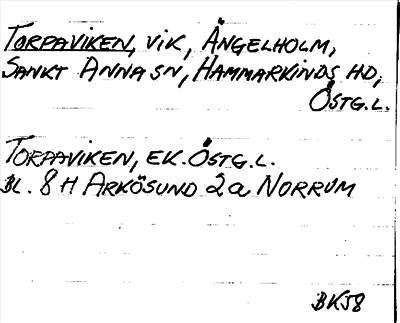 TORPAVIKEN, VIK, ÄNGELHOLM,
SANKT ANNA SN, HAMMARKINDS HD,
ÖSTG.L.
TORPAVIKEN, EK. ÖSTG.L.
BL. 8 H ARKÖSUND 2a NORRUM
BKJ8